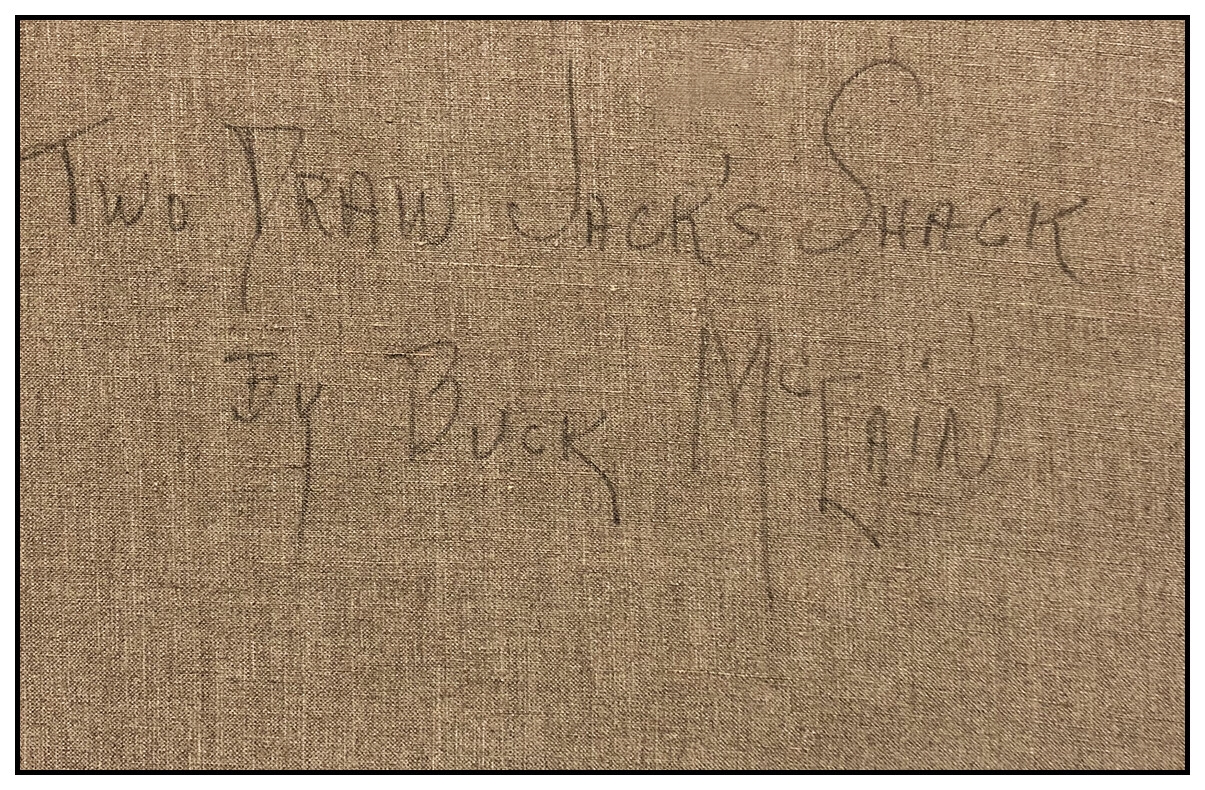 Two Draw Jack's Shack
By Buck McCain